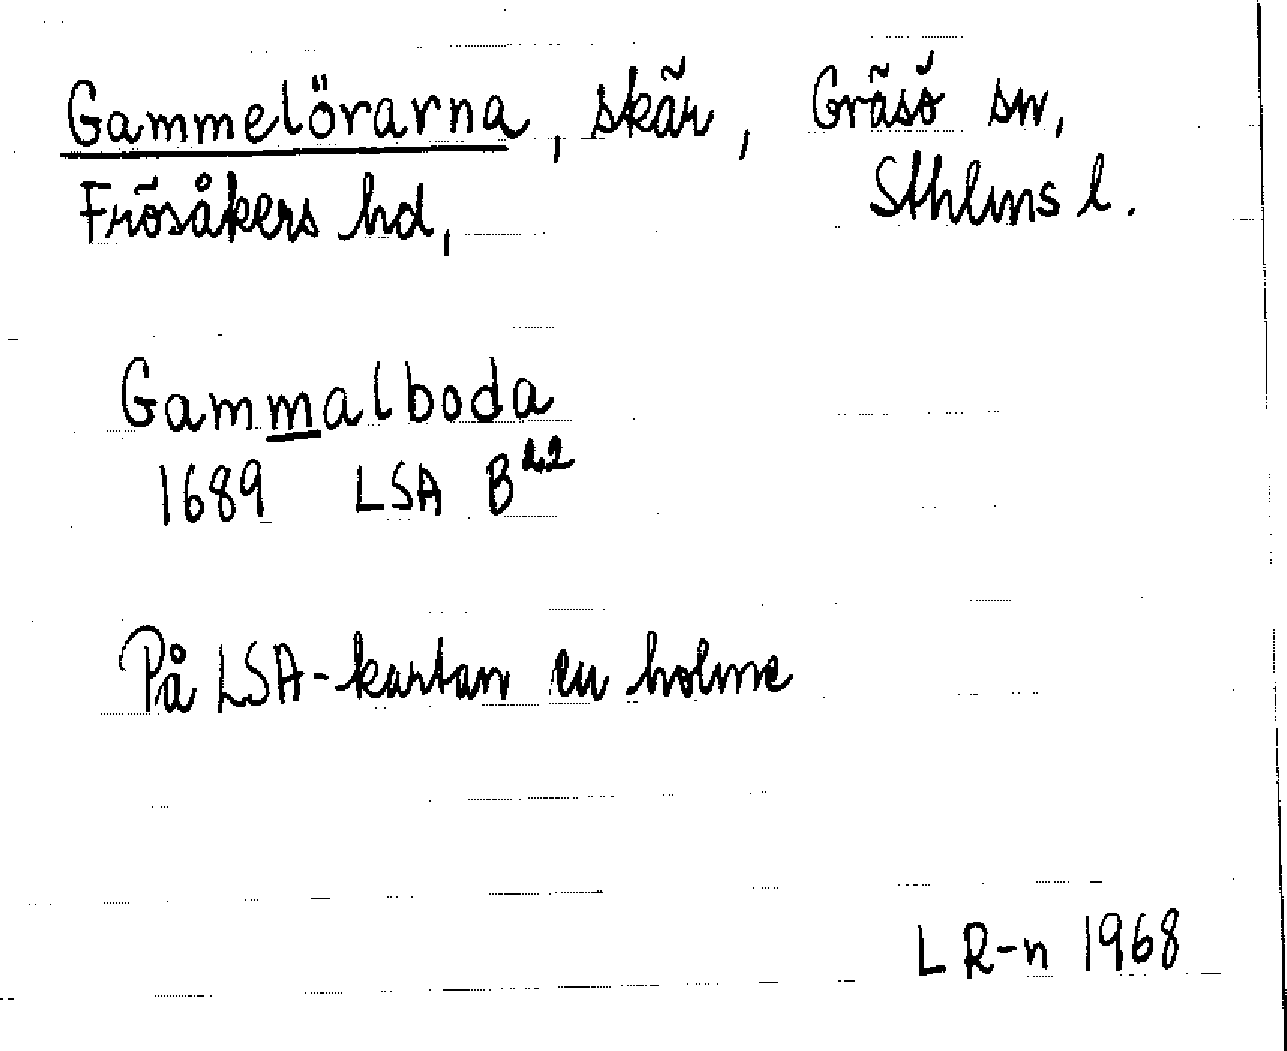 Gammelörarna, skär, Gräsö sn,
Frösåkers hd, Sthlms l.
Gammalboda
1689 LSA B22
På LSA-kartan en holme
L R-n 1968